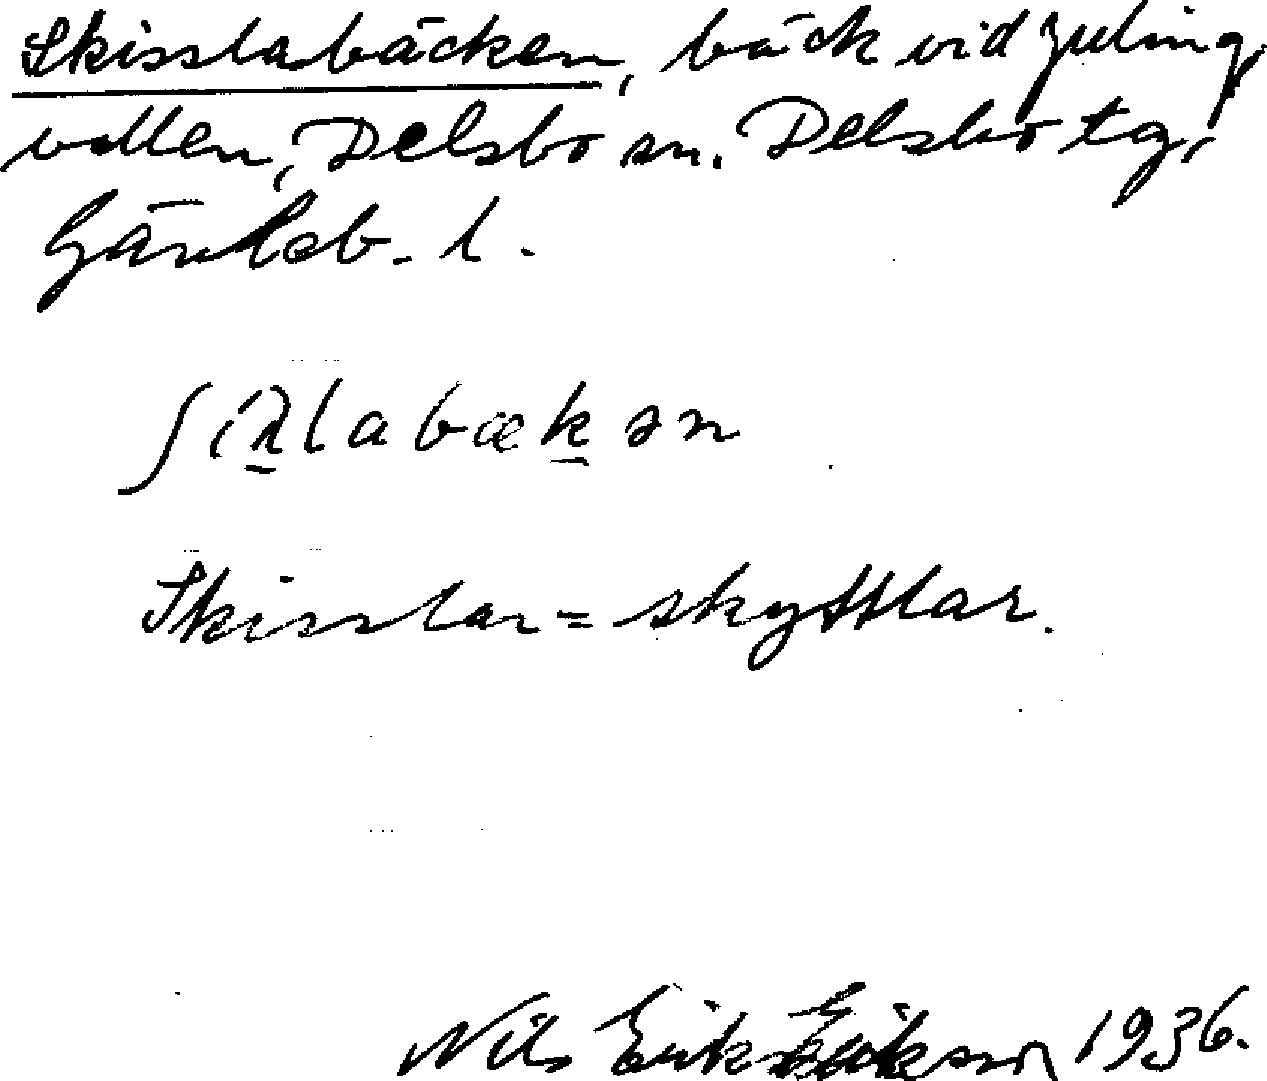 Skisslabäcken, bäck vid Juling,
vallen, Delsbo sn. Delsbo tg,
Gävleb. l.
bækən
Skisslar = skyttlar.
Nils Erik Erikson 1936.